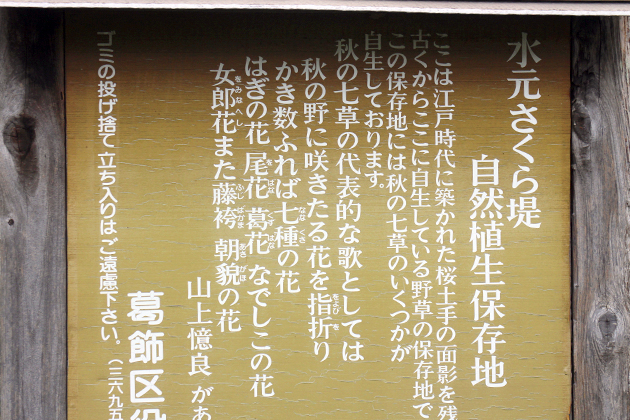 水元さくら堤
自然植生保存地
ここは江戸時代に築かれた桜土手の面影を残
古くからここに自生している野草の保存地で
この保存地には秋の七草のいくつかが
自生しております。
秋の七草の代表的な歌としては
秋の野に咲きたる花を指折り
かき数ふれば七種の花
はぎの花 尾花 葛花 なでしこの花
女郎花また藤袴 朝貌の花
山上憶良 があ
葛飾区役
ゴミの投げ捨て立ち入りはご遠慮下さい。(三六九五